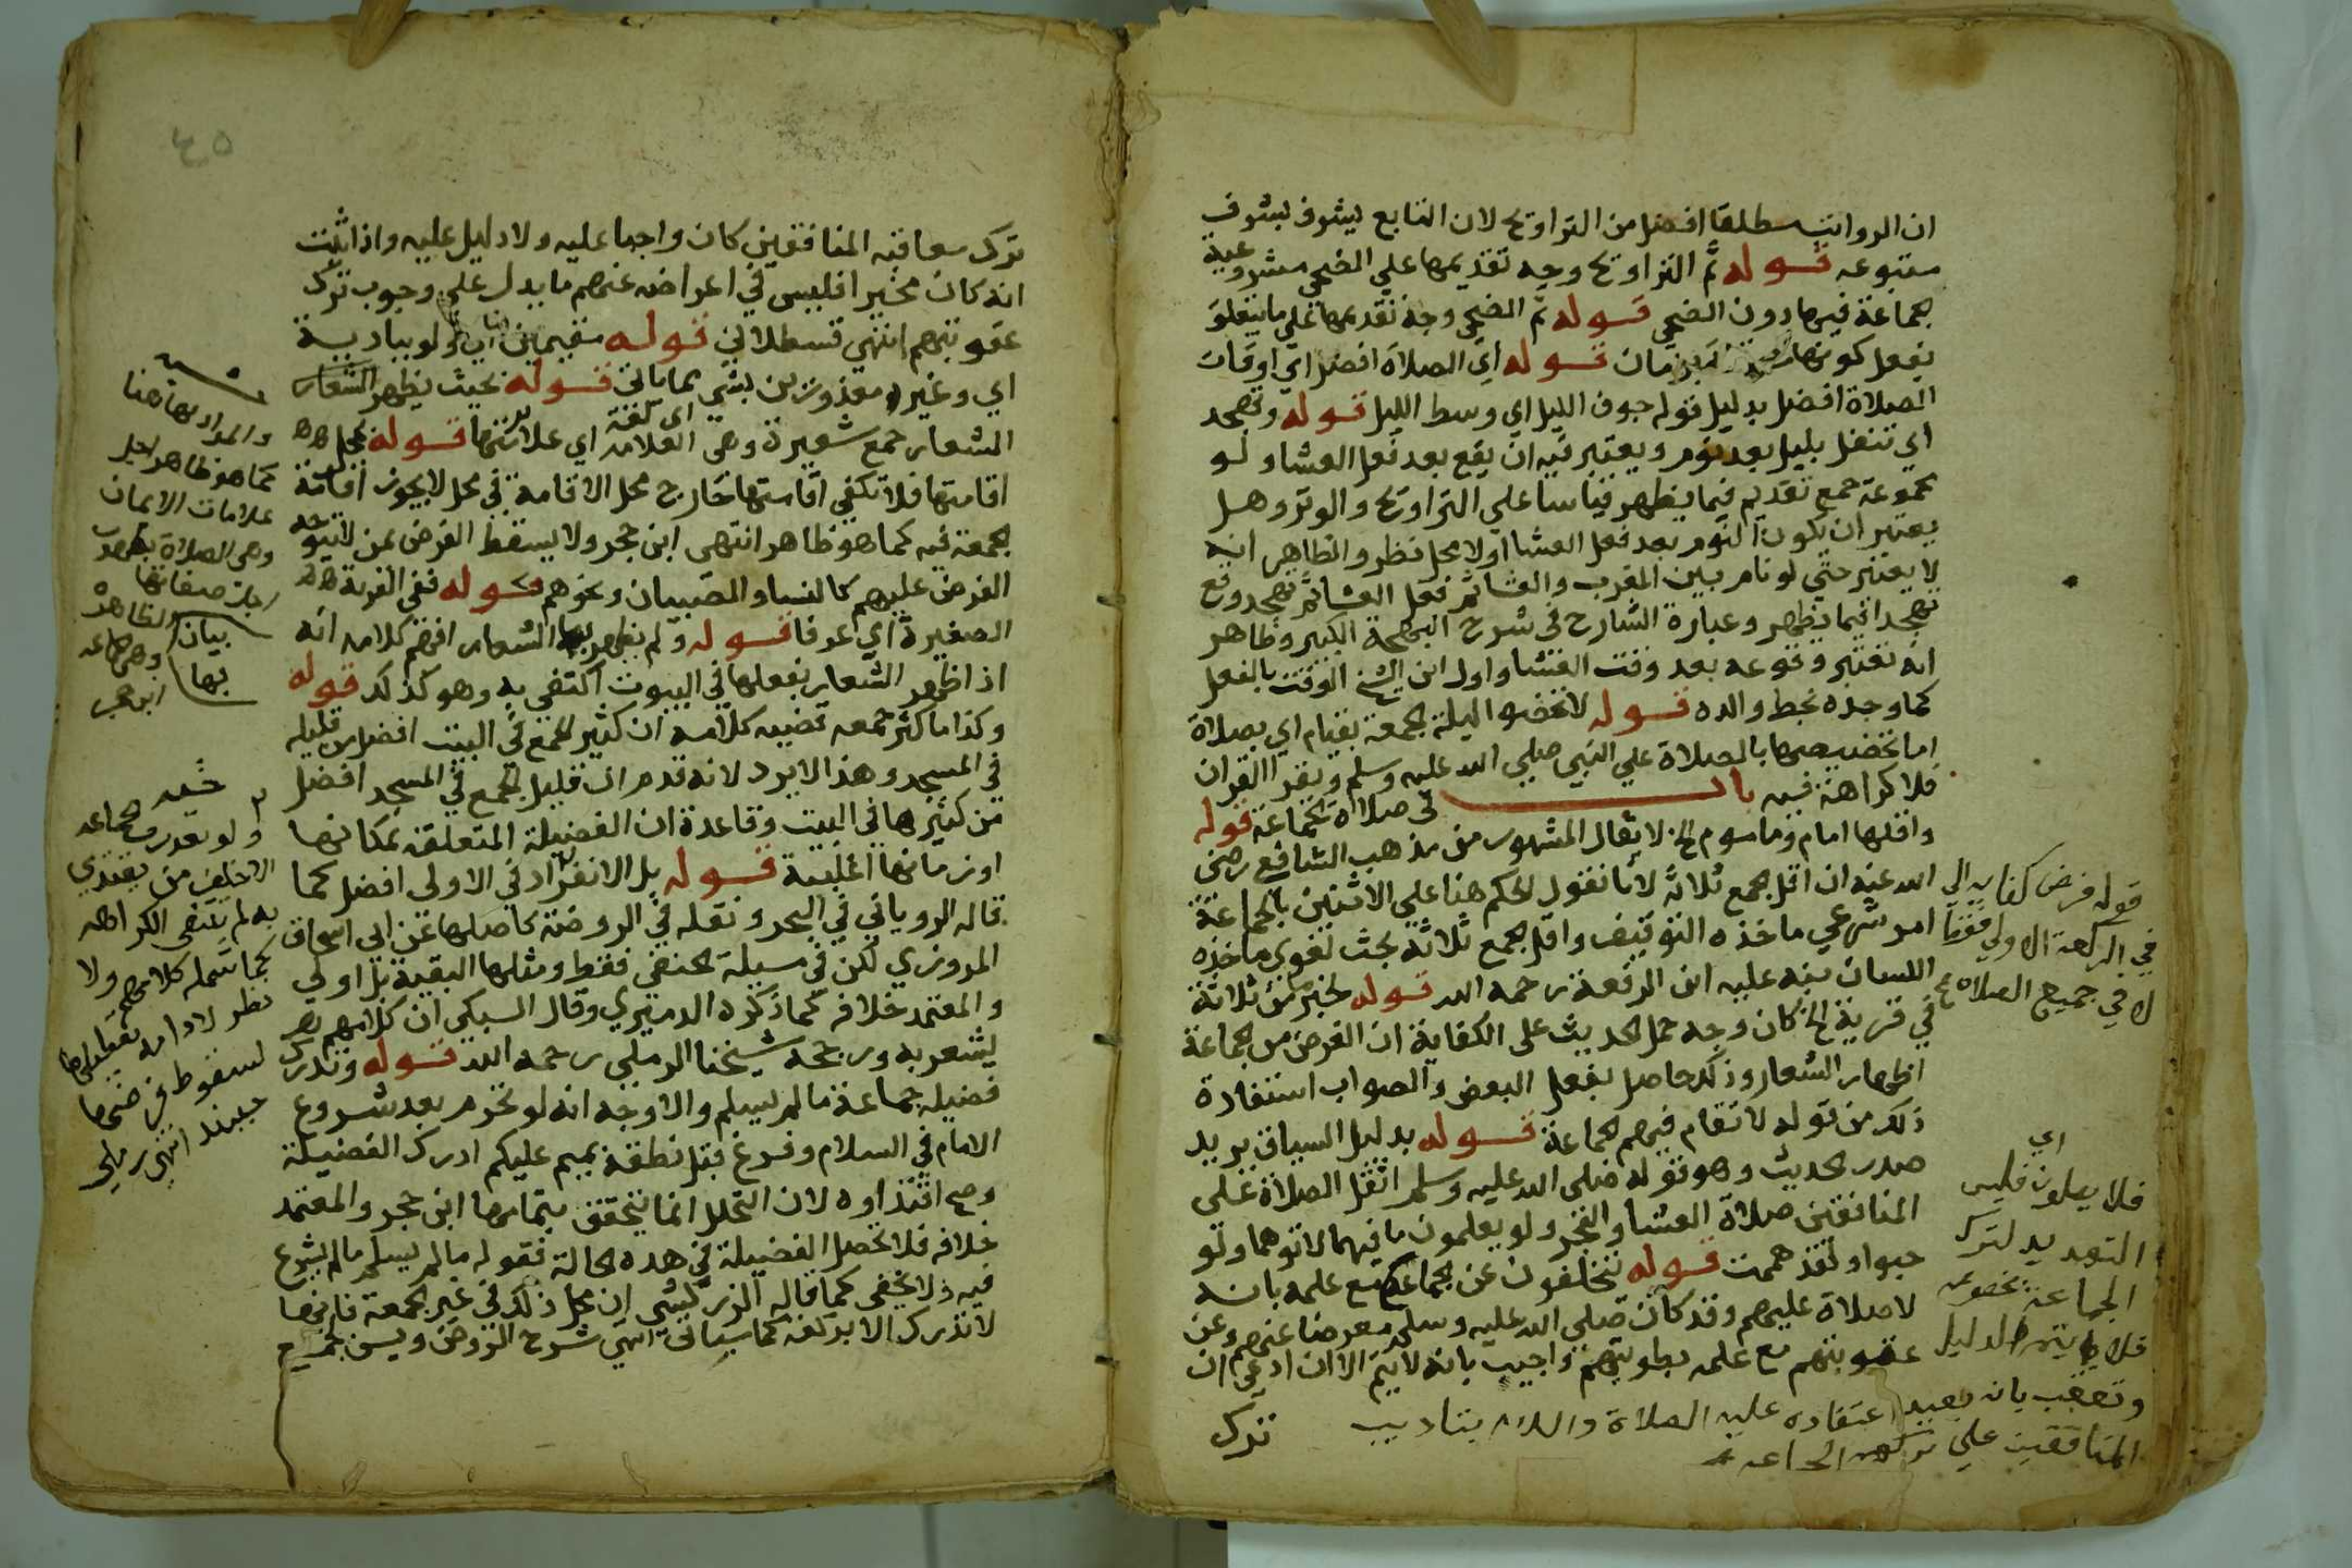 ان الرواتب مطلقا افضل من التراويح لان التابع يشرف بشرف
متبوعه قوله ثم التراويح وجه تقديمها علي الضحي مشروعية
الجماعة فيها دون الضحي قوله ثم الضحي وجه تقديمها علي ما يتعلق
بفعل كونها بزمان قوله اي الصلاة افضل اي اوقات
الصلاة افضل بدليل قوله جوف الليل اي وسط الليل قوله وتهجد
اي تنفل بليل بعد نوم ويعتبر فيه ان يقع بعد فعل العشا ولو
مجموعة جمع تقديم فيما يظهر قياسا علي التراويح والوتر وهل
يعتبر ان يكون النوم بعد فعل العشا اولا محل نظر والظاهر انه
لا يعتبر حتي لو نام بين المغرب والعشا ثم فعل العشا ثم تهجد وقع
تهجدا فيما يظهر وعبارة الشارح في شرح البهجة الكبير وظاهر
انه تعتبر وقوعه بعد وقت العشا واول ابن الشيخ الوقت بالفعل
كما وجده بخط والده قوله لا تخصوا ليلة الجمعة بقيام اي بصلاة
اما تخصيصها بالصلاة علي النبي صلي الله عليه وسلم ويقرا القران
فلا كراهة فيه باب في صلاة الجماعة قوله
واقلها امام وماموم الخ لا يقال المشهور من مذهب الشافع رضي
الله عنه ان اقل الجمع ثلاثة لانا نقول الحكم هنا علي الاثنين بالجماعة
امر شرعي ماخذه التوقيف واقل الجمع ثلاثة بحث لغوي ماخذه
اللسان نبه عليه ابن الرفعة رحمه الله قوله لخبر ما من ثلاثة
في قرية الخ كان وجه حمل الحديث على الكفاية ان الغرض من الجماعة
اظهار الشعار وذلك حاصل بفعل البعض والصواب استفادة
ذلك من قوله لا تقام فيهم الجماعة قوله بدليل السياق يريد
صدر الحديث وهو قوله صلى الله عليه وسلم اثقل الصلاة على
المنافقين صلاة العشا والفجر ولو يعلمون ما فيهما لاتوهما ولو
حبوا ولقد هممت قوله يتخلفون عن الجماعة مع علمه بانه
لا صلاة عليهم وقد كان صلي الله عليه وسلم معرضا عنهم وعن
عقوبتهم مع علمه بطويتهم واجيب بانه لا يتم الا ان ادعي ان
ترك
قوله فرض كفاية الي
في الركعة الاولي فقط
لا في جميع الصلاه
اي
فلا يصلون فليس
التهديد لترك
الجماعة بخصوصه
فلا يتم الدليل
وتعقب بانه بعيد اعتقاده عليه الصلاة والسلام بتاديب
المنافقين علي تركهم الجماعة
٤٥
ترك معاقبة المنافقين كان واجبا عليه ولا دليل عليه واذا ثبت
انه كان مخير افليس في اعراضه عنهم ما يدل علي وجوب ترك
عقوبتهم انتهي قسطلاني قوله مقيمين ولو ببادية
اي وغير معذورين بشي مما ياتي قوله بحيث يظهر الشعار
الشعار جمع شعيرة وهي اي لغة العلامة اي علامتها قوله بمحل
اقامتها فلا تكفي اقامتها خارج محل الاقامة في محل لا يجوز اقامة
الجمعة فيه كما هو ظاهر انتهى ابن حجر ولا يسقط الفرض عمن لا يتوجه
الفرض عليهم كالنساء والصبيان ونحوهم قوله ففي القرية
الصغيرة اي عرفا قوله ولم يظهر بها الشعار افهم كلامه انه
اذا ظهر الشعار بفعلها في البيوت اكتفي به وهو كذلك قوله
وكذا ما كثر جمعه قضية كلامه ان كثير الجمع في البيت افضل من قليله
في المسجد وهذا لا يرد لانه قدم ان قليل الجمع في المسجد افضل
من كثيرها في البيت وقاعدة ان الفضيلة المتعلقة بمكانها
او زمانها اغلبية قوله بل الانفراد في الاولى افضل كما
قاله الروياني في البحر ونقله في الروضة كاصلها عن ابي اسحاق
المروزي لكن في مسيلة الحنفي فقط ومثلها البقية بل اولي
والمعتمد خلافه كما ذكره الدميري وقال السبكي ان كلامهم
يشعر به ورجحه شيخنا الرملي رحمه الله قوله وتدرك
فضيلة جماعة ما لم يسلم والاوجه انه لو تحرم بعد شروع
الامام في السلام وفرغ قبل نطقه بميم عليكم ادرك الفضيلة
وصح اقتداوه لان التحلل انما يتحقق بتمامها ابن حجر والمعتمد
خلافه فلا تحصل الفضيلة في هذه الحالة فقوله ما لم يسلم ما لم يشرع
فيه ولا يخفي كما قاله الزركشي ان محل ذلك في غير الجمعة فانها
لا تدرك الا بركعة كما سياتي انتهي شرح الروض ويسن لجمع
والمراد بها هنا
كما هو ظاهر اجل
علامات الايمان
وهي الصلاة بظهور
اجل صفاتها
الظاهرة
وهي الجماعه
ابن حجر
بيان
بها
ولو تعددت الجماعه
الا خلف من يقتدي
به لم تنتفي الكراهه
كما شمله كلامهم ولا
نظر لادامة تعطيلها
لسقوط فرضها
حينئذ انتهي رملي